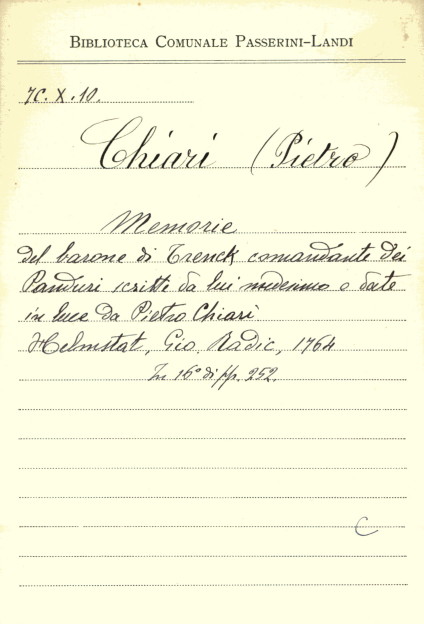 BIBLIOTECA COMUNALE PASSERINI-LANDI
7C. X. 10.
Chiari (Pietro)
Memorie
del barone di Trenck comandante dei
Panduri scritte da lui medesimo e date
in luce da Pietro Chiari
Helmstat, Gio. Radic, 1764
In 16° di pp. 252.
C